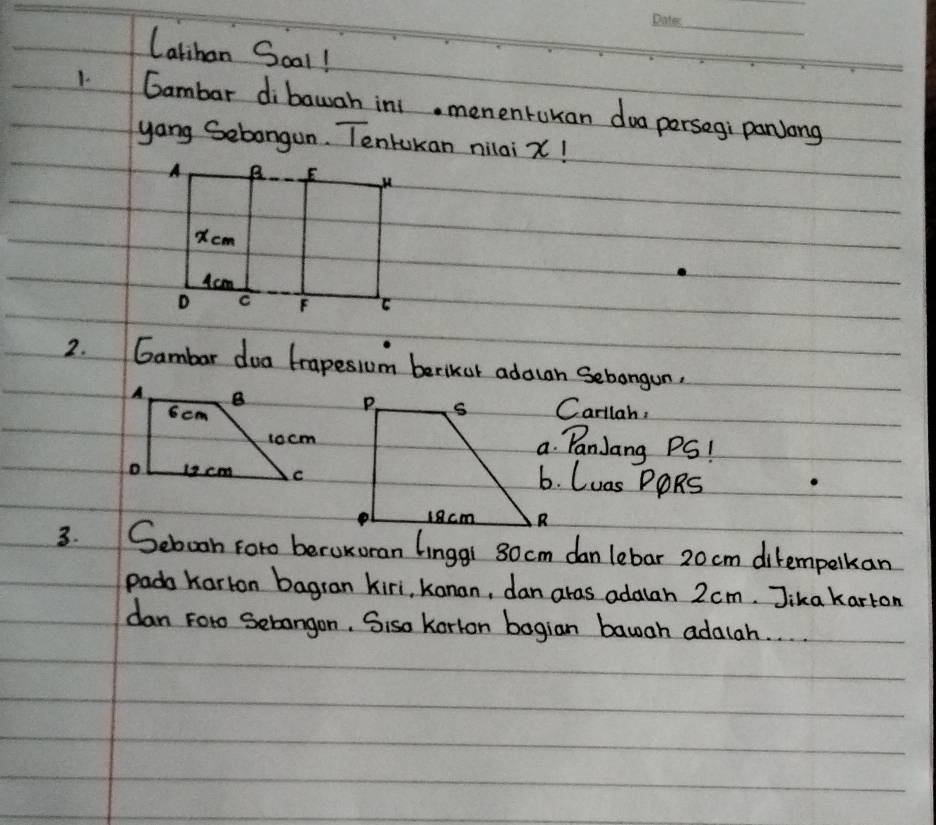 Date:
Latihan Soal!
1. Gambar di bawah ini . menentukan dua persegi panjang
yang Sebangun. Tentukan nilai x!
A B E H
x cm
4cm
D C F C
2. Gambar dua trapesium berikut adalah Sebangun.
A B P S Carilah:
6cm
10cm a. Panjang PS!
D 12 cm C b. Luas PQRS
Q 18cm R
3. Sebuah Foto berukuran tinggi 30cm dan lebar 20 cm ditempelkan
pada karton bagian kiri, kanan, dan atas adalah 2cm. Jika karton
dan Foto Sebangon. Sisa karton bagian bawah adalah....